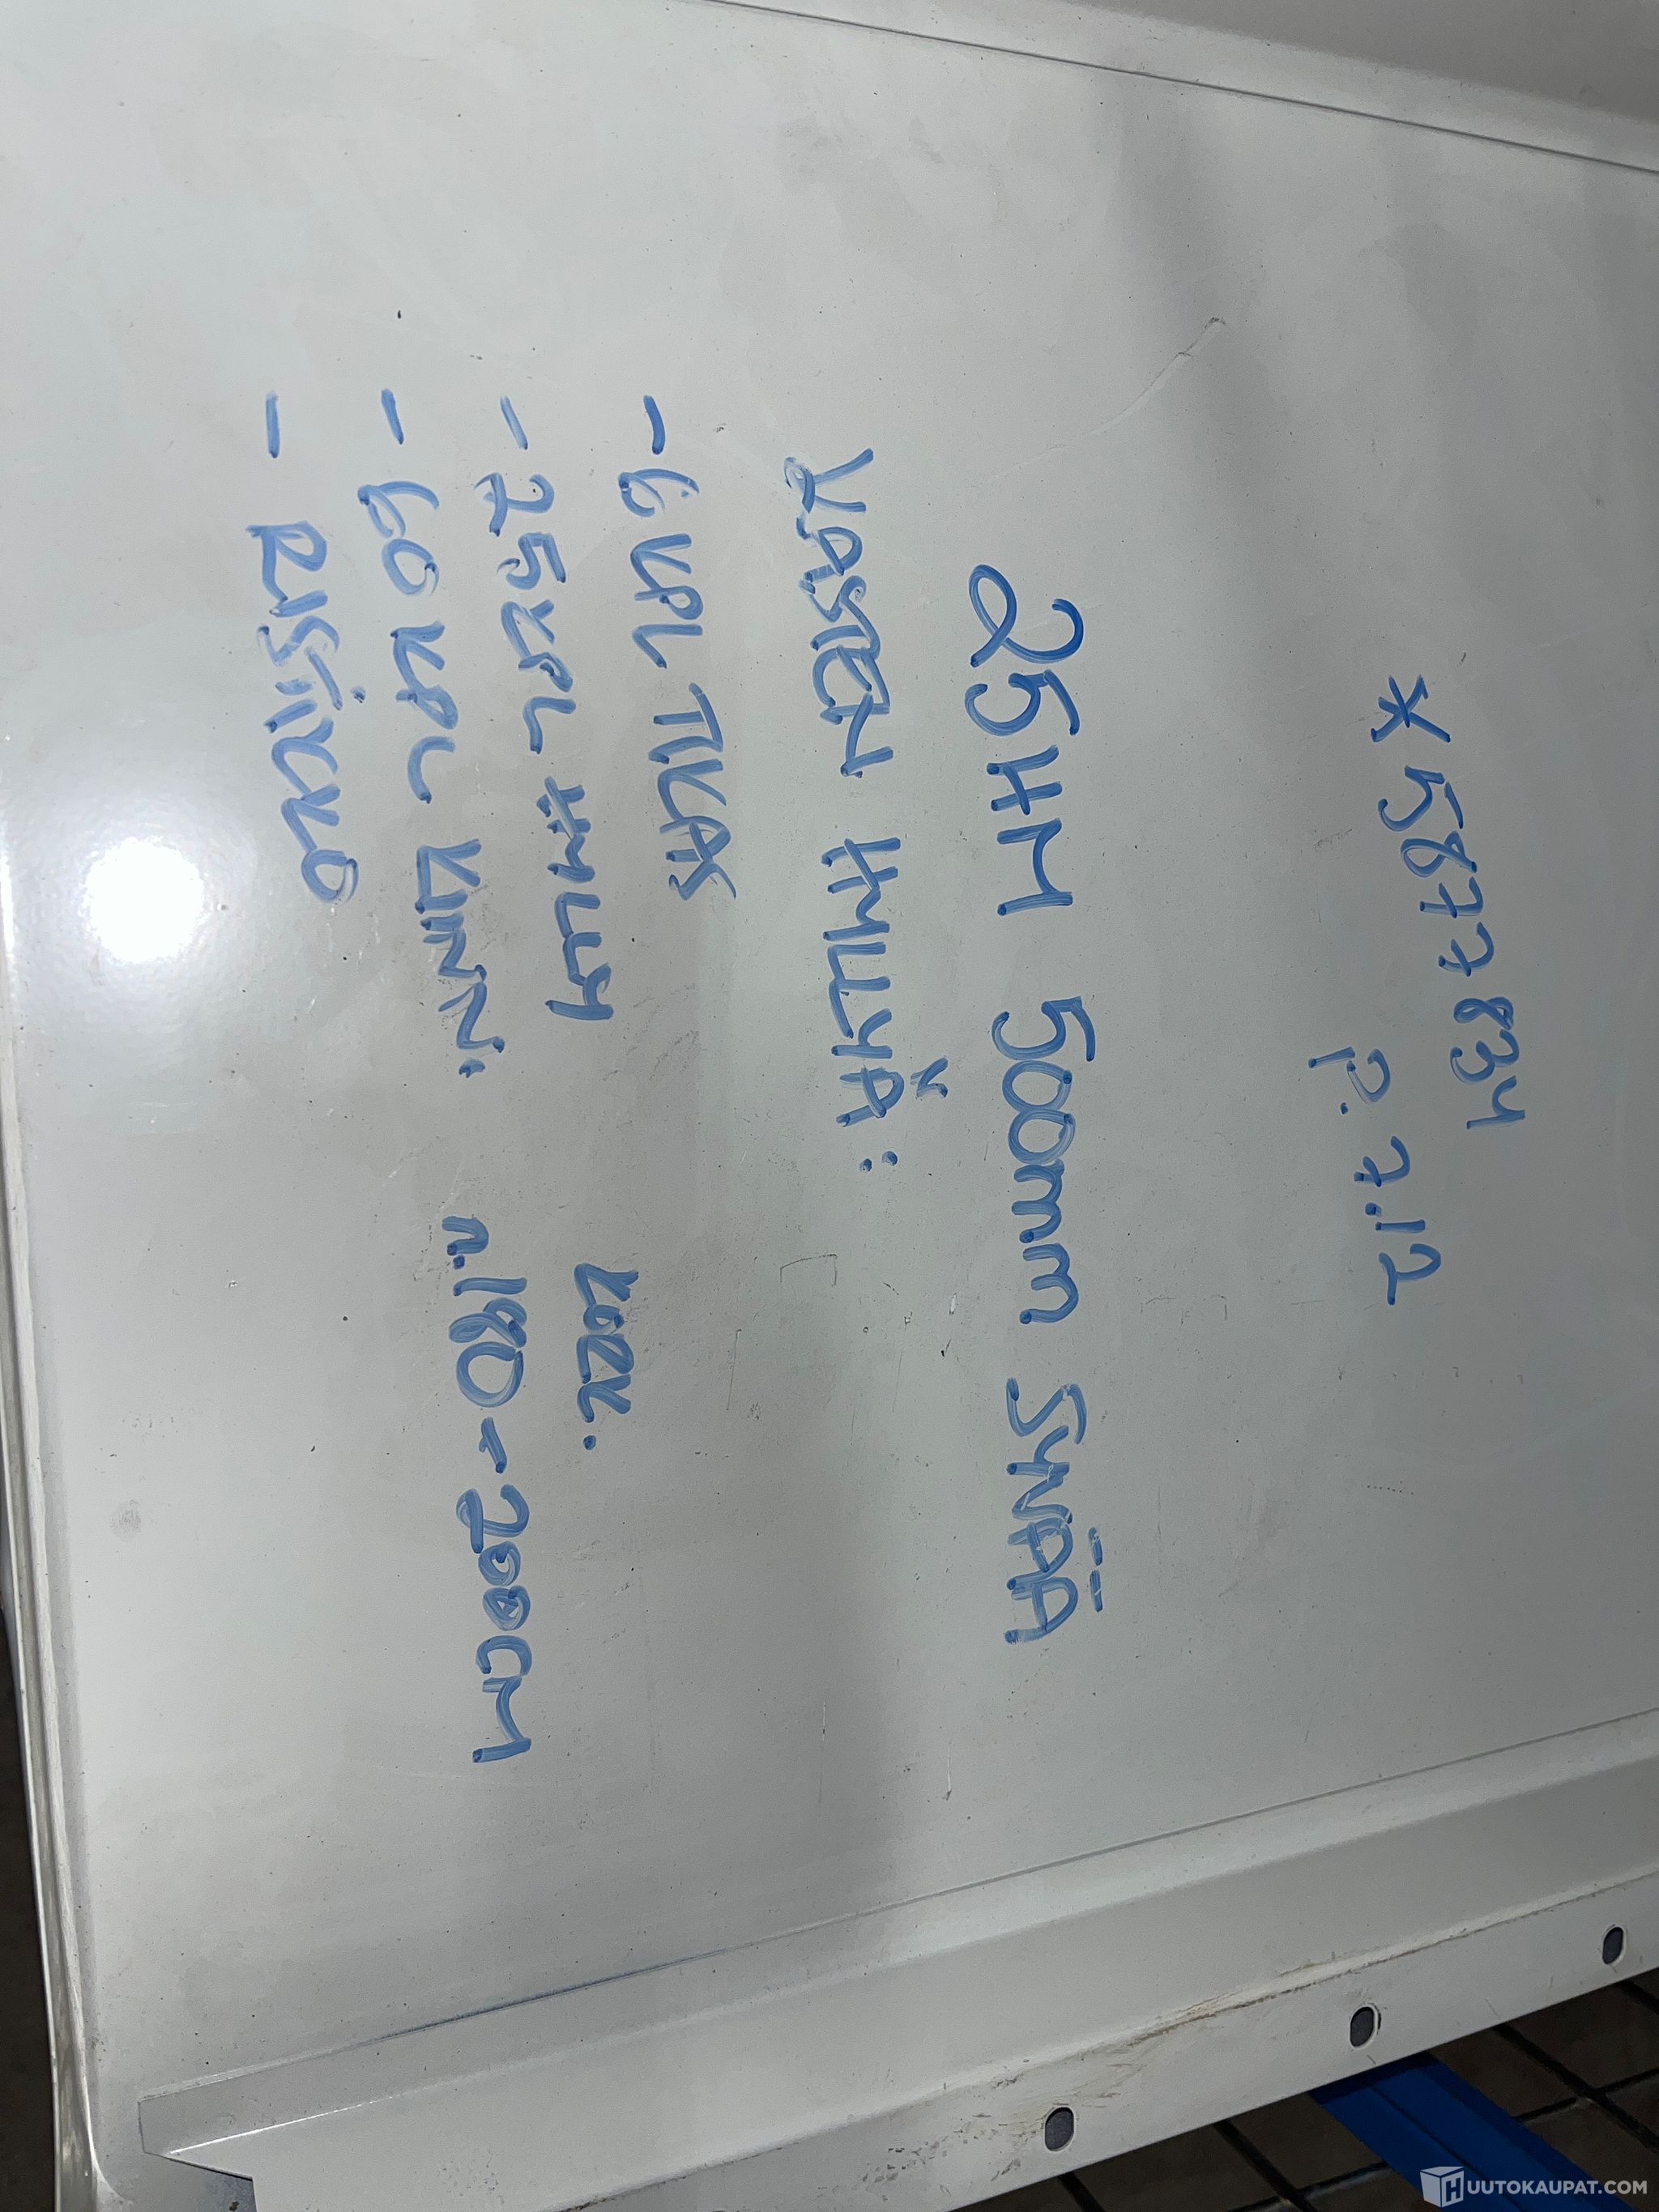 * 5877834
P. 7.12
25HM 500mm SYVÄÄ
- 6 KPL TIKAS
- 25 KPL HYLLY KORK.
- 60 KPL KIINNI: n.180-200CM
- RISTIKKO
HUUTOKAUPAT.COM